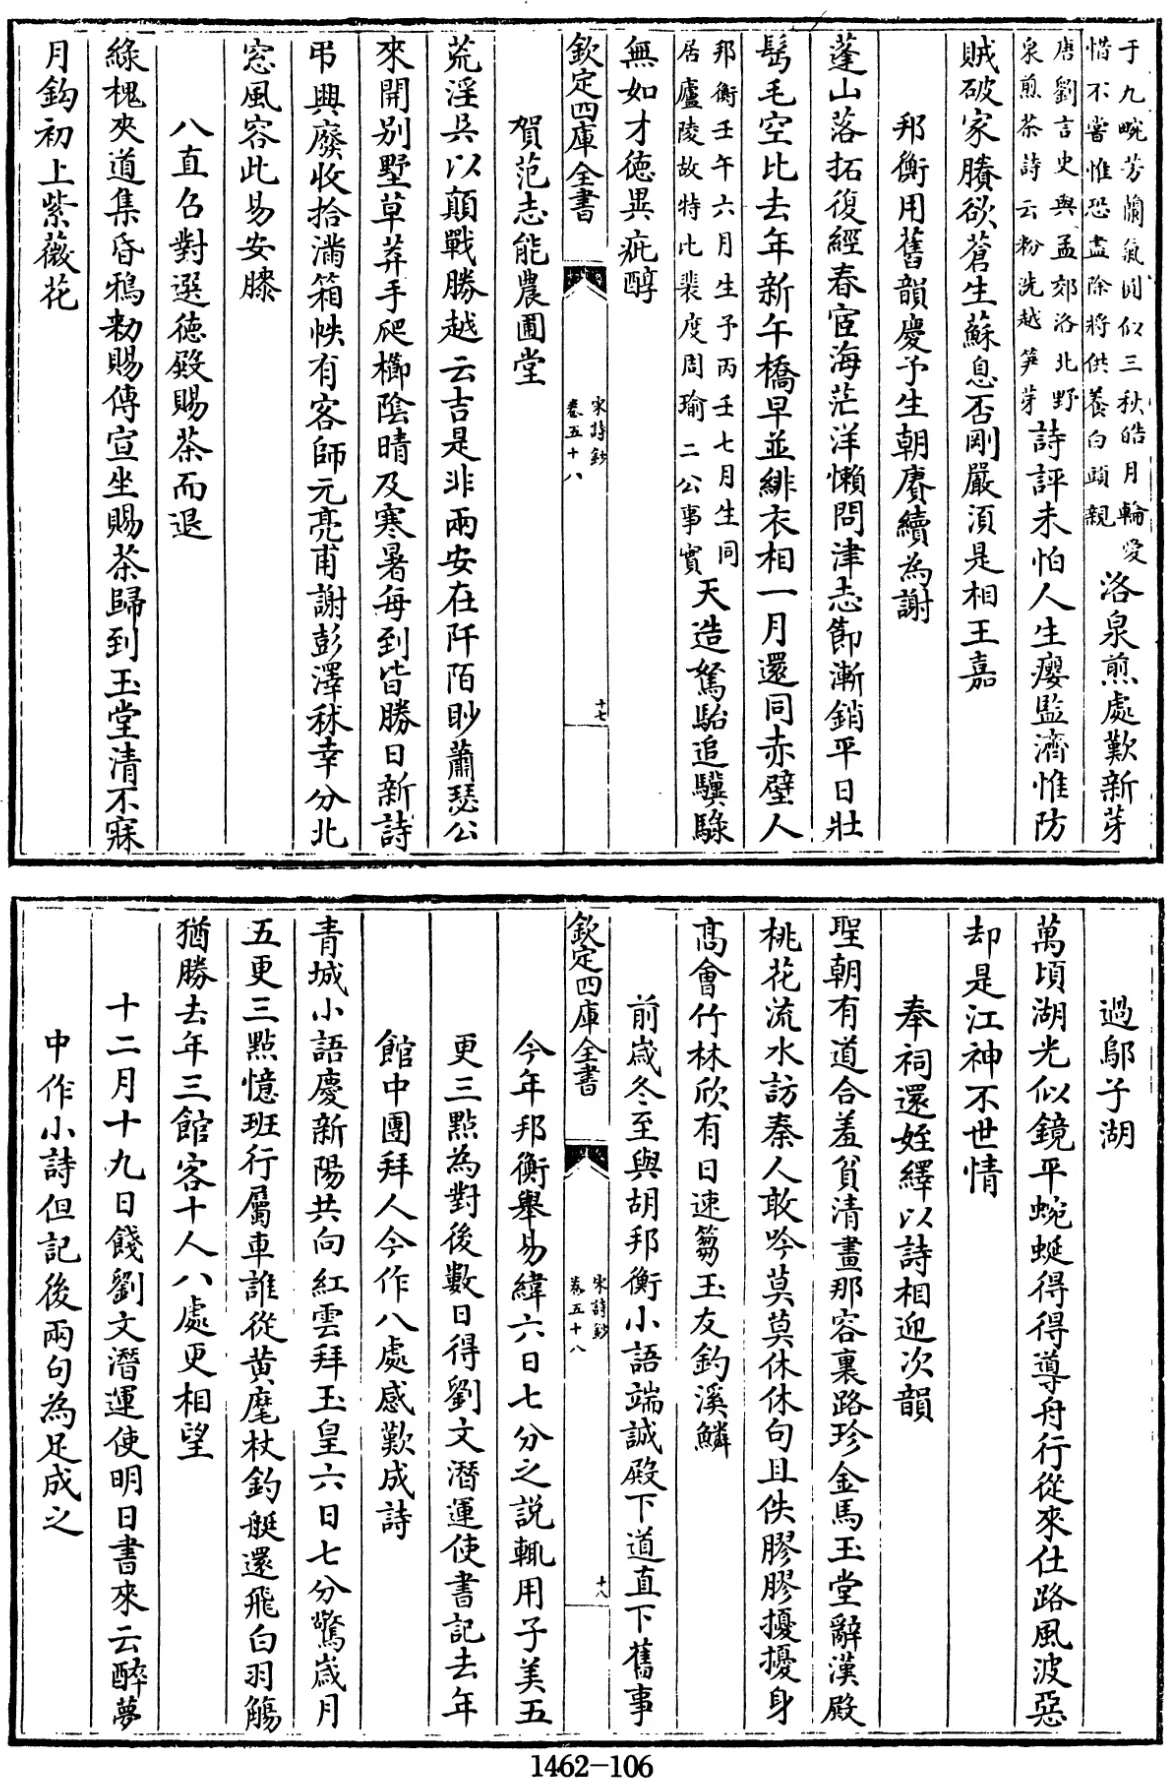 于九畹芳蘭氣圓似三秋皓月輪愛
惜不嘗惟恐盡除將供養白頭親
洛泉煎處歎新芽
唐劉言史與孟郊洛北野
泉煎茶詩云粉洗越笋芽
詩評未怕人生癭監濟惟防
賊破家賸欲蒼生蘇息否剛嚴須是相王嘉
邦衡用舊韻慶予生朝賡續為謝
蓬山落拓復經春宦海茫洋懶問津志節漸銷平日壯
髩毛空比去年新午橋早並緋衣相一月還同赤壁人
邦衡壬午六月生予丙壬七月生同
居廬陵故特比裴度周瑜二公事實
天造駑駘追驥騄
無如才德異疵醇
欽定四庫全書
宋詩鈔
卷五十八
十七
賀范志能農圃堂
荒淫吳以顛戰勝越云吉是非兩安在阡陌眇蕭瑟公
來開別墅草莽手爬櫛陰晴及寒暑每到皆勝日新詩
弔興廢收拾滿箱帙有客師元亮甫謝彭澤秫幸分北
窓風容此易安膝
八直召對選德殿賜茶而退
綠槐夾道集昏鴉勅賜傳宣坐賜茶歸到玉堂清不寐
月鈎初上紫薇花
過鄔子湖
萬頃湖光似鏡平蜿蜒得得導舟行從來仕路風波惡
却是江神不世情
奉祠還姪繹以詩相迎次韻
聖朝有道合羞貧清晝那容裹路珍金馬玉堂辭漢殿
桃花流水訪秦人敢吟莫莫休休句且佚膠膠擾擾身
髙會竹林欣有日速篘玉友釣溪鱗
前歲冬至與胡邦衡小語端誠殿下道直下舊事
欽定四庫全書
宋詩鈔
卷五十八
十八
今年邦衡舉易緯六日七分之説輒用子美五
更三點為對後數日得劉文潛運使書記去年
館中團拜人今作八處感歎成詩
青城小語慶新陽共向紅雲拜玉皇六日七分驚歲月
五更三點憶班行屬車誰從黄麾杖釣艇還飛白羽觴
猶勝去年三館客十人八處更相望
十二月十九日餞劉文潛運使明日書來云醉夢
中作小詩但記後兩句為足成之
1462-106